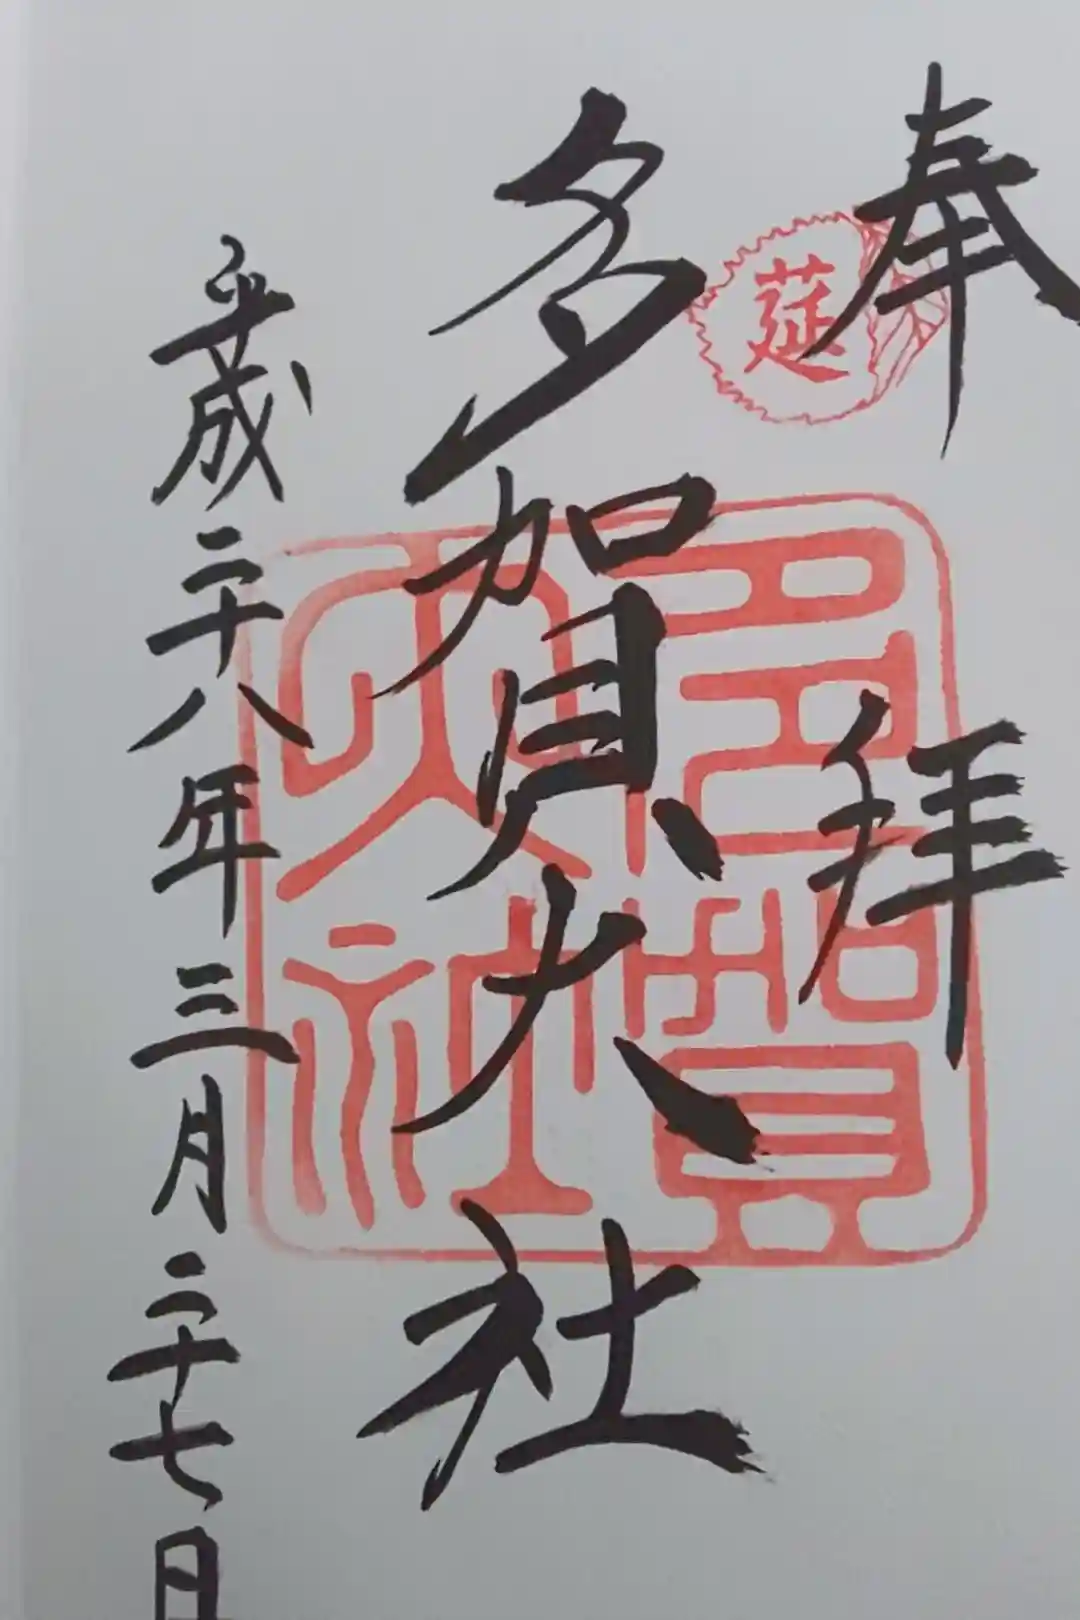 奉拝
莚
多賀大社
多賀大社
平成二十八年三月二十七日